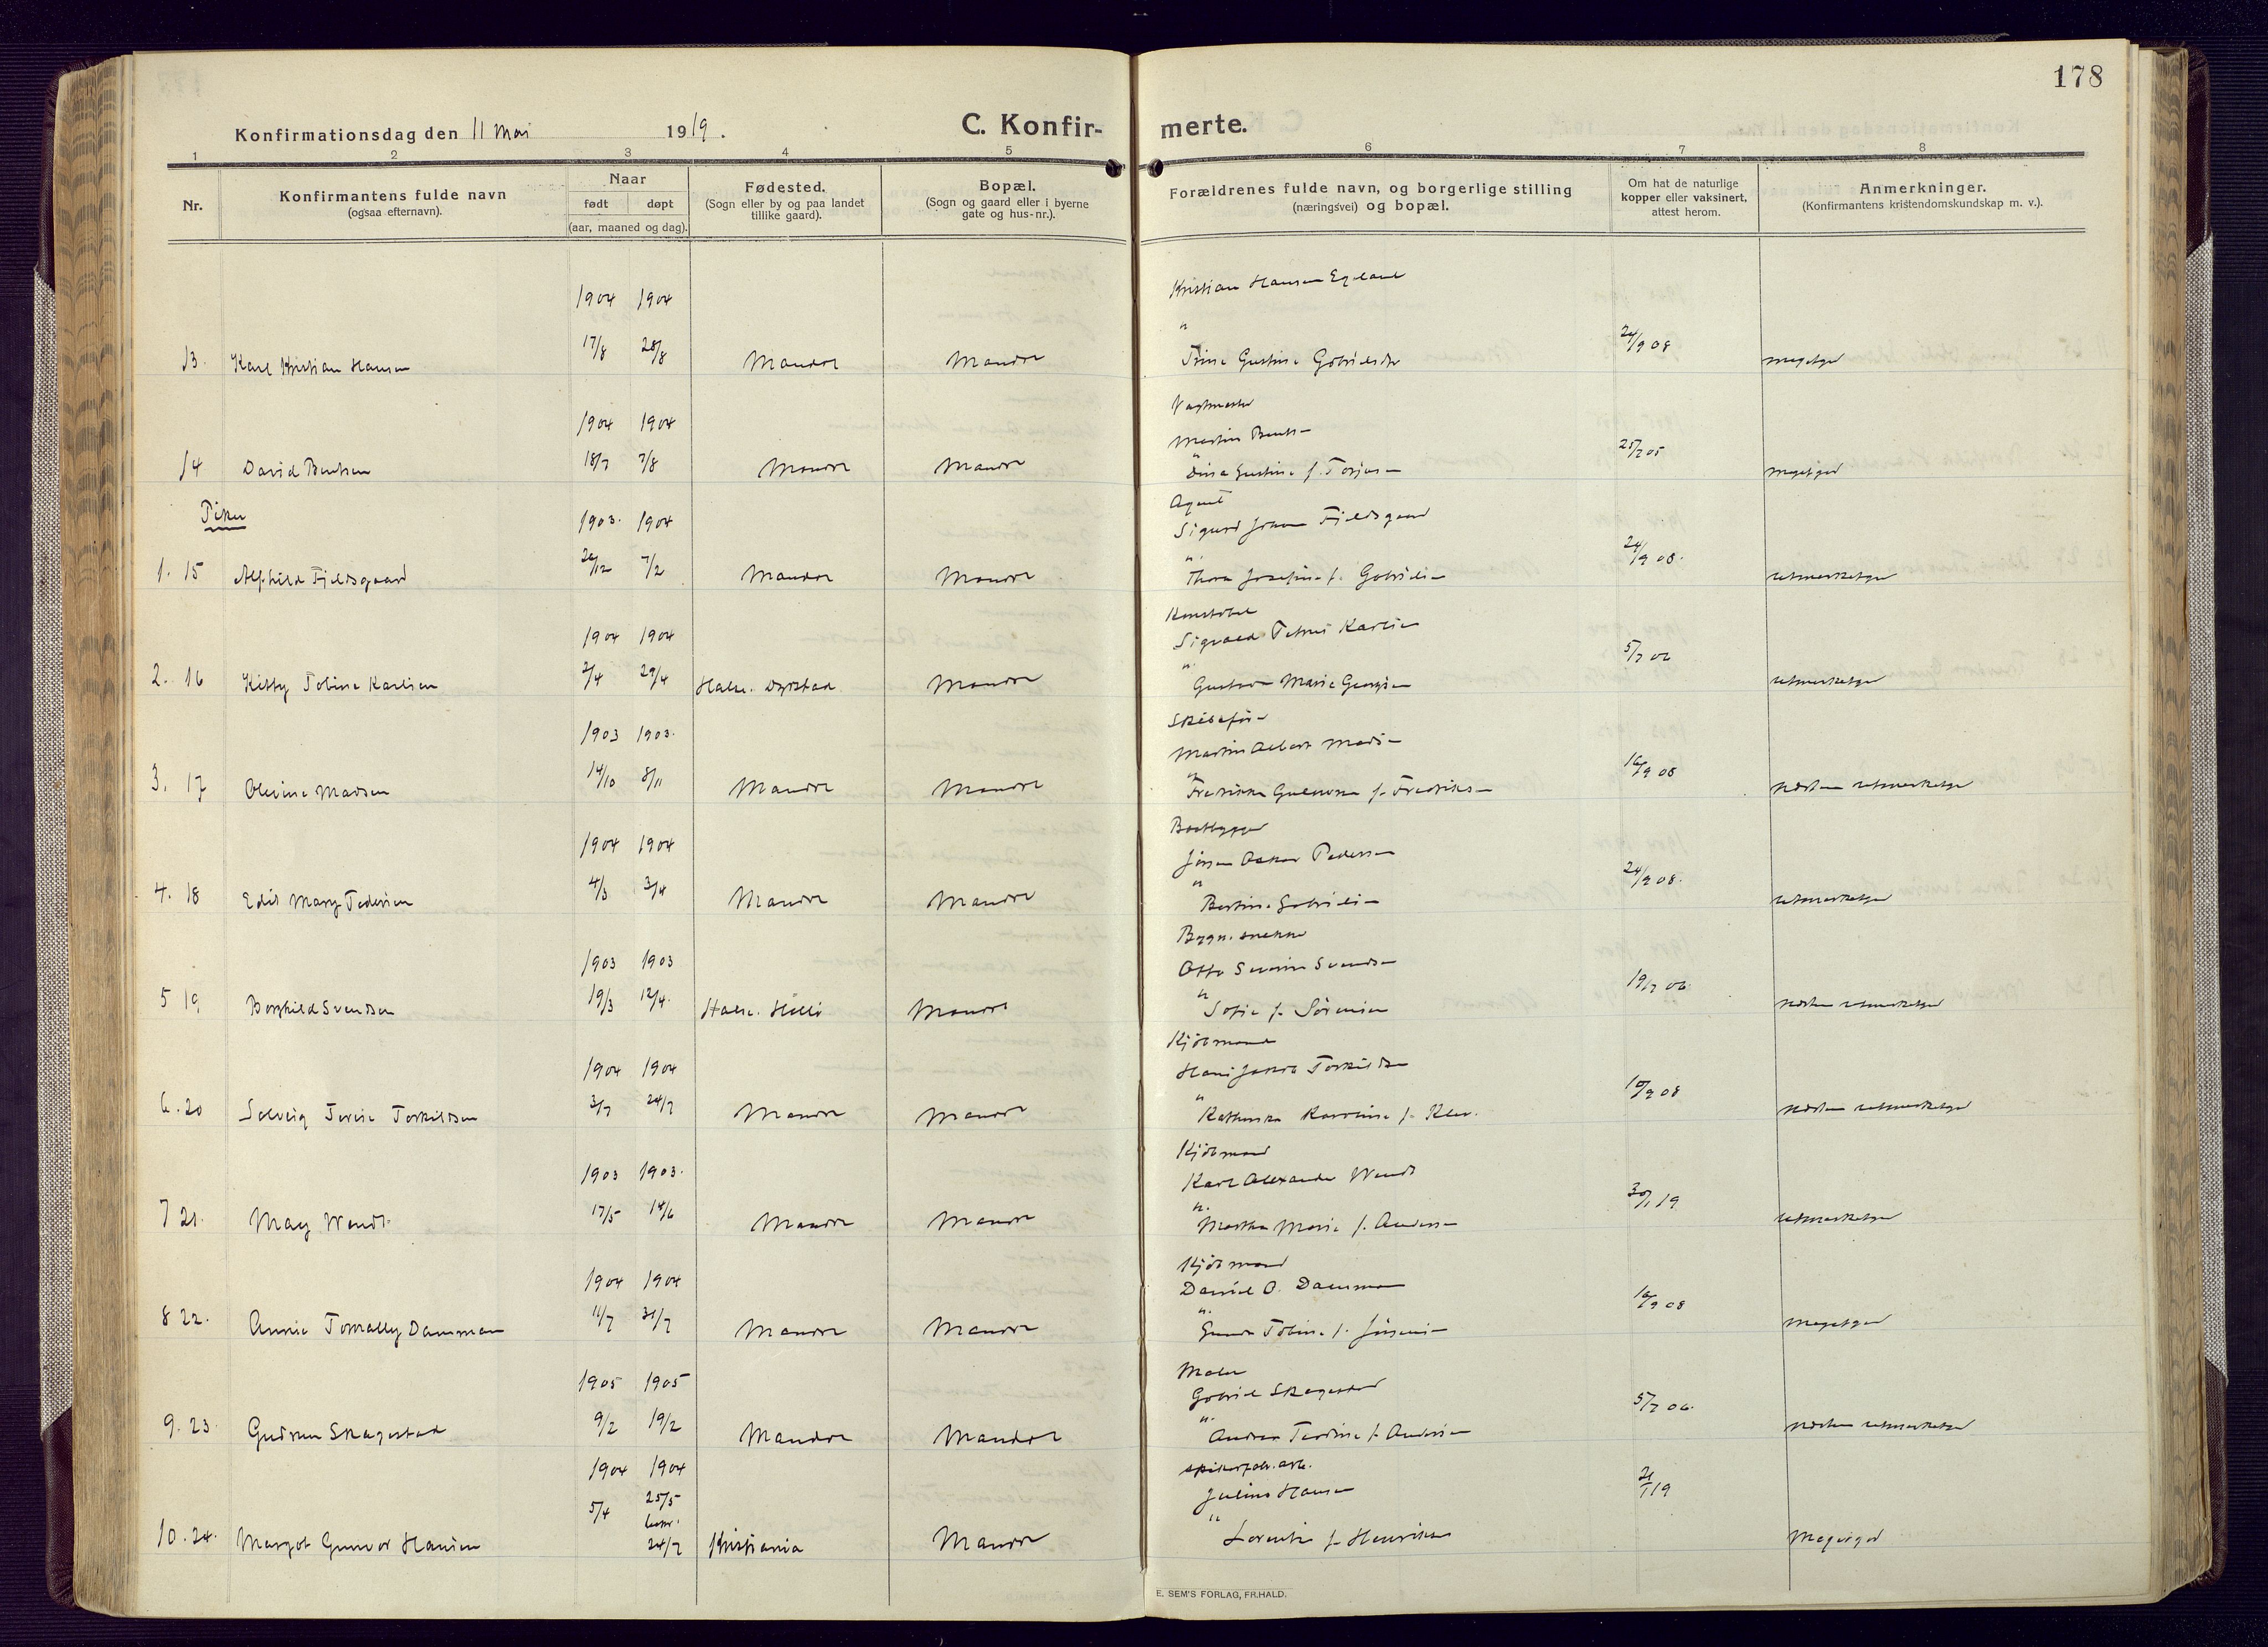 178
Konfirmationsdag den 11 Mai 1919.
C. Konfirmerte.
1 2 3 4 5 6 7 8
Nr.
Konfirmantens fulde navn
(ogsaa efternavn).
Naar
født døpt
(aar, maaned og dag).
Fødested.
(Sogn eller by og paa landet
tillike gaard).
Bopæl.
(Sogn og gaard eller i byerne
gate og hus-nr.).
Forældrenes fulde navn, og borgerlige stilling
(næringsvei) og bopæl.
Om hat de naturlige
kopper eller vaksinert,
attest herom.
Anmerkninger.
(Konfirmantens kristendomskundskap m. v.).
Kristian Hansen Egeland
1904 1904
"
13. Karl Kristian Hansen 17/8 28/8 Mandal Mandal Trine Gustine Gabrielsdtr 24/9 08 megetgod
1904 1904
Martin Bents
14 David Bentsen 18/7 7/8 Mandal Mandal Gustine f. Torjus 25/7 05 megetgod
Piker
Agent
1903. 1904 Sigurd Johan Fjeldsgaard
"
1. 15 Alfhild Fjeldsgaard 7/2 Mandal Mandal Thora Josefine f. Gabriels 24/9 08. utmerketgod
Konstabel
1904 1904 Sigvald Petrus Karlsen
"
2. 16 Kitty Tobine Karlsen 2/4 29/4 Halse. Dyrstad Mandal Marie 5/7 06 utmerketgod
Skibsfør
1903 1903. Martin Albert Mads
"
3. 17 Olevine Madsen 14/10 8/11 Mandal Mandal Fredrikka f. Fredriks 16/9 08 næsten utmerketgod
Baatbygger
1904 1904 Jørgen Oskar Pedersen
"
4. 18 Edit Mary Pedersen 4/3 3/4 Mandal Mandal Bertine Gabriels 24/9 08. utmerketgod
Bygn. snekker
1903 1903 Otto Severin Svends
"
5 19 Borghild Svendsen 19/3 12/4. Halse. Mandal Sofie f. Sørensen 19/7 06. næsten utmerketgod
Kjøbmand
1904 1904 Hans Jakob Torkildsen
"
6. 20 Solveig Torkildsen 3/7 24/7 Mandal Mandal Kathinka Karoline f. 10/9 08 næsten utmerketgod
Kjøbmand
1903 1903. Karl Alexander Wendt
"
7 21. May Wendt 17/5 14/6 Mandal Mandal Martha Marie f. Anders 30/1 19 utmerketgod
Kjøbmand
1904 1904 Daniel O. Damman
"
8 22. Annie Damman 11/7 31/7 Mandal Mandal Tobine f. Jørgens 16/9 08 megetgod
Maler
1905 1905 Gabriel Skagestad
"
9. 23. Gudrun Skagestad 9/2 19/2 Mandal Mandal Andrea f. Andersen 5/7 06. næsten utmerketgod
1904 1904 arb.
5/4 25/5 Julius Hansen 21/1 19
"
10. 24. Margot Gunvor Hansen 24/7 Kristiania Mandal f. Henriksen Megetgod
E. SEM'S FORLAG, FR.HALD.